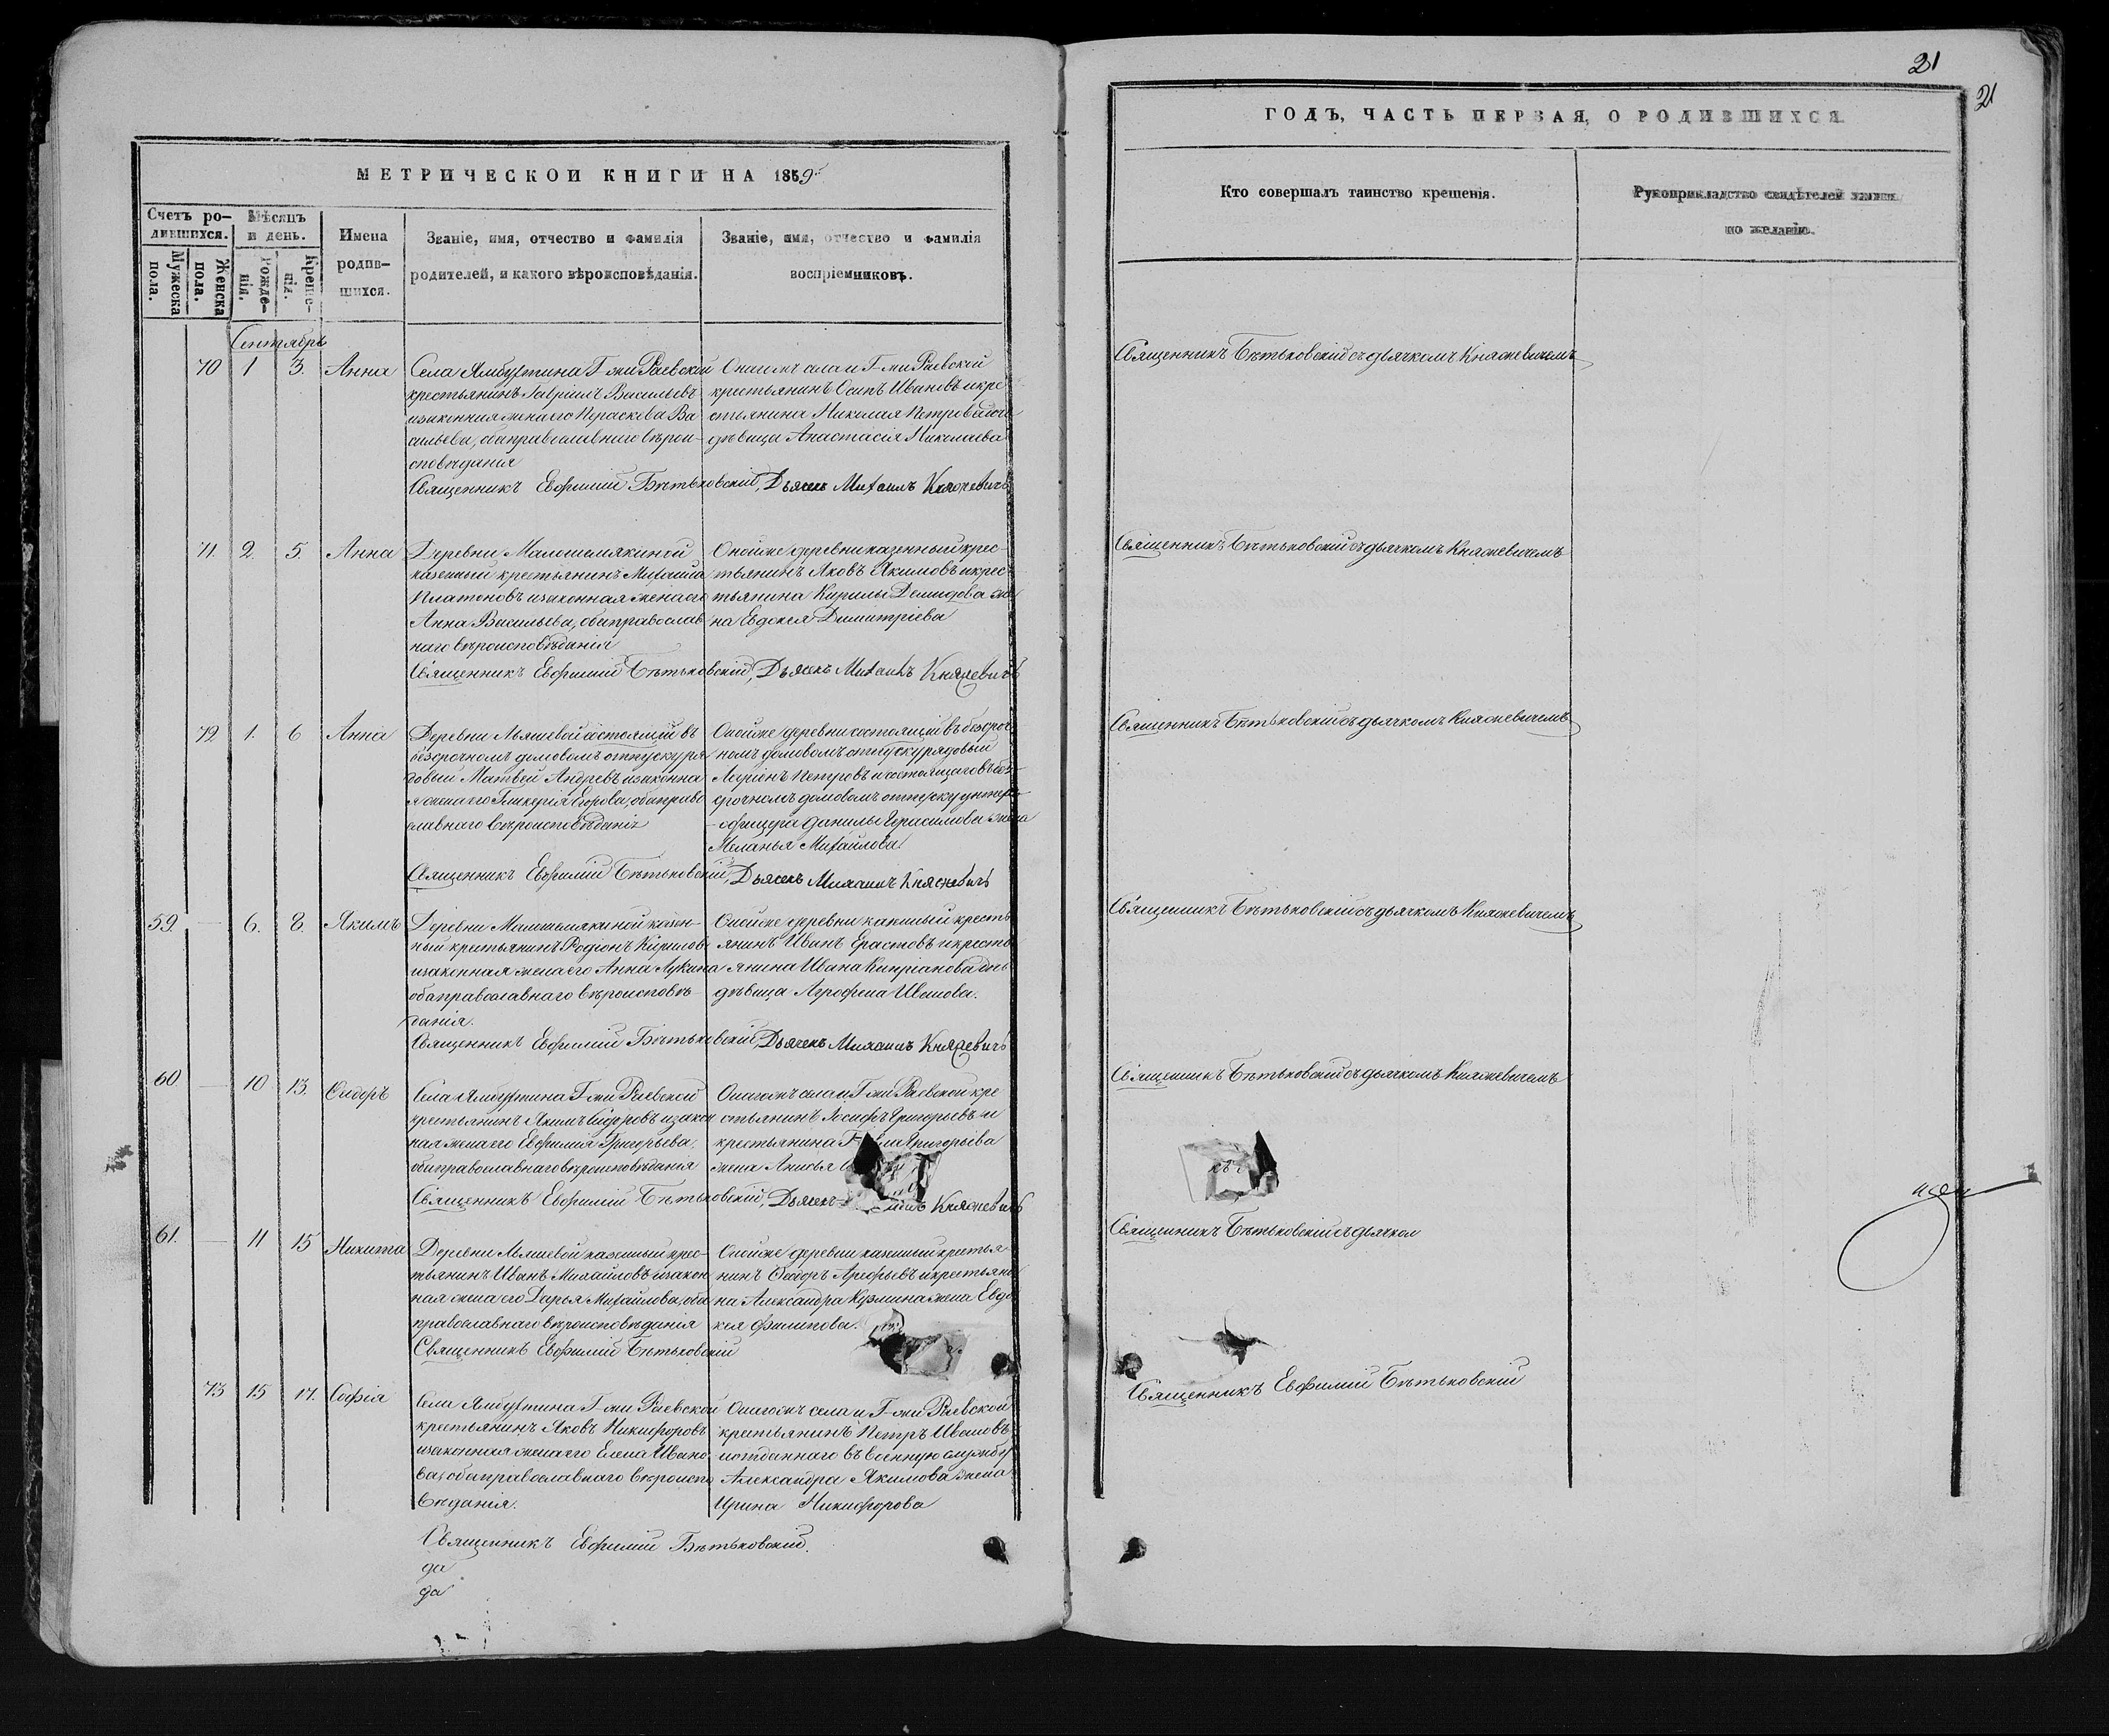 МЕТРИЧЕСКОЙ КНИГИ НА 1859
Счетъ ро-
дившихся.
Мѣсяцъ
и день.
Мужеска
пола.
Женска
пола.
Рожде-
нія.
Креще-
нія.
Имена
родив-
шихся.
Званіе, имя, отчество и фамилія
родителей, и какого вѣроисповѣданія.
Званіе, имя, отчество и фамилія
воспріемниковъ.
Сентябрь
70 1 3. Анна
Села Ямбухтина Г-жи Раевской
крестьянинъ Гавріилъ Васильевъ
изаконная жена его Параскева Ва
сильева, оба православнаго вѣрои-
сповѣданія
Онагожъ села и Г-жи Раевской
крестьянинъ Осипъ Ивановъ икре
стьянина Николая Петрова дочь
дѣвица Анастасія Николаева
Священникъ Евфимій Бѣтьковскій, Дьячекъ Михаилъ Княжевичъ
71. 2. 5. Анна
Деревни Малошемякиной
казенный крестьянинъ Михаила
Платоновъ изаконная жена его
Анна Васильева, оба православ
наго вѣроисповѣданія
Онойже деревни казенный крес-
тьянинъ Яковъ Якимовъ икрес-
тьянина Кирилы Демидова же
на Евдокея Димитріева
Священникъ Евфимій Бѣтьковскій, Дьячекъ Михаилъ Княжевичъ
72 1. 6 Анна
состоящій въ
безсрочномъ домовомъ отпуску ря
довый Матвей Андреевъ изаконна
я жена его Гликерія Егорова, оба право
славнаго вѣроисповѣданія
Онойже деревни состоящій въ безсроч
номъ домовомъ отпуску рядовый
Ларіонъ Петровъ и состоящаго въ без-
срочномъ домовомъ отпуску унтеръ-
-офицера Данилы Герасимова жена
Меланья Михайлова
Священникъ Евфимій Бѣтьковскій, Дьячекъ Михаилъ Княжевичъ
59. 6. 8. Якимъ
Деревни Малошемякиной казен-
ный крестьянинъ Родіонъ Кириловъ
изаконная жена его Анна Лукина
оба православнаго вѣроисповѣ-
данія.
Онойже деревни казенный кресть
янинъ Иванъ Ерастовъ икресть
янина Ивана Кипріанова дочь
дѣвица Агрофена Иванова.
Священникъ Евфимій Бѣтьковскій, Дьячекъ Михаилъ Княжевичъ
60 10 13. Сидоръ
Села Ямбухтина Г-жи Раевской
крестьянинъ Якимъ Сидоровъ изакон
ная жена его Евфимія Григорьева,
оба православнаго вѣроисповѣданія
Онагожъ села и Г-жи Раевской кре
стьянинъ Іосифъ Григорьевъ и
крестьянина Григорьева
жена Анисья
Священникъ Евфимій Бѣтьковскій, Дьячекъ Княжевичъ
61. 11 15 Никита
казенный крес-
тьянинъ Иванъ Михайловъ изакон
ная жена его Дарья Михайлова, оба
православнаго вѣроисповѣданія
Онойже деревни казенный крестья
нинъ Ѳеодоръ Арефьевъ икрестьяни
на Александра Кузмина жена Евдо
кея Филипова.
Священникъ Евфимій Бѣтьковскій
73 15 17. Софія
Села Ямбухтина Г-жи Раевской
крестьянинъ Яковъ Никифоровъ
изаконная жена его Елена Ивано
ва, оба православнаго вѣроиспо
вѣданія.
Онагожъ села и Г-жи Раевской
крестьянинъ Петръ Ивановъ
иотданнаго въ военную службу
Александра Якимова жена
Ирина Никифорова
Священникъ Евфимій Бѣтьковскій.
да
да
21
21
ГОДЪ, ЧАСТЬ ПЕРВАЯ, О РОДИВШИХСЯ.
Кто совершалъ таинство крещенія.
Рукоприкладство свидѣтелей записи
по желанію.
Священникъ Бѣтьковскій съ дьячкомъ Княжевичемъ
Священникъ Бѣтьковскій съ дьячкомъ Княжевичемъ
Священникъ Бѣтьковскій съ дьячкомъ Княжевичемъ
Священникъ Бѣтьковскій съ дьячкомъ Княжевичемъ
Священникъ Бѣтьковскій съ дьячкомъ Княжевичемъ
Священникъ Бѣтьковскій съ дьячком
Священникъ Евфимій Бѣтьковскій